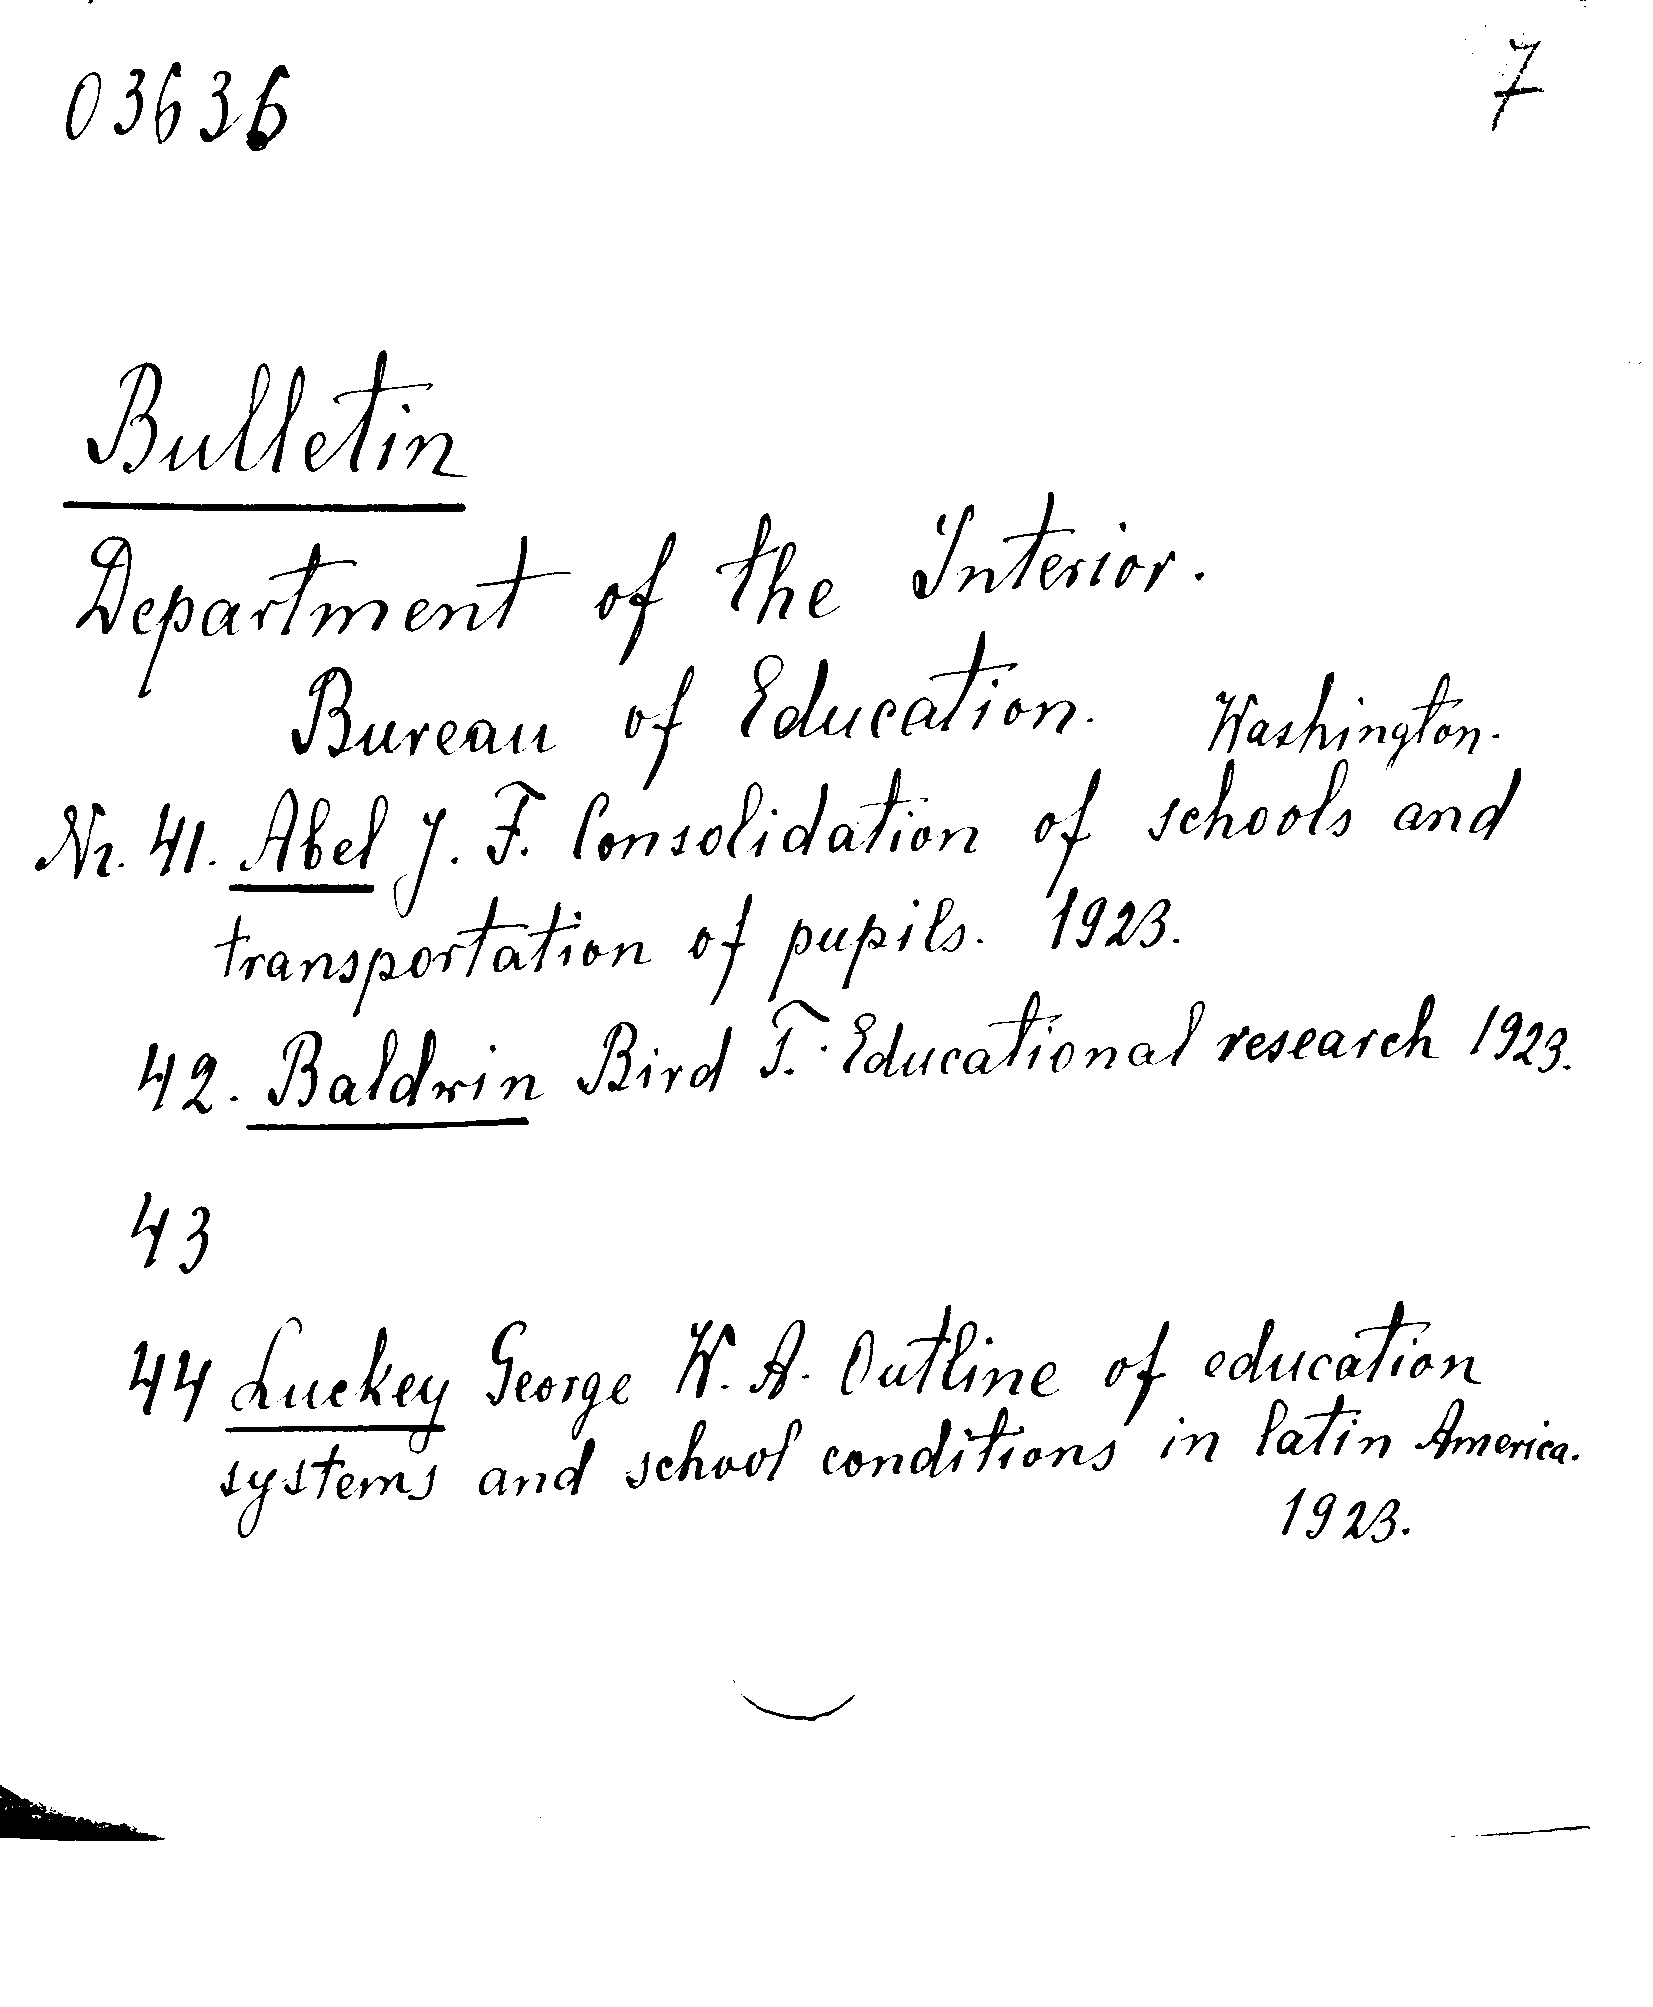 03636 7
Bulletin
Department of the Interior.
Bureau of Education. Washington.
Nr. 41. Abel J. F. Consolidation of schools and
transportation of pupils. 1923.
42. Baldwin Bird T. Educational research 1923.
43
44 Luckey George W. A. Outline of education
systems and school conditions in latin America.
1923.